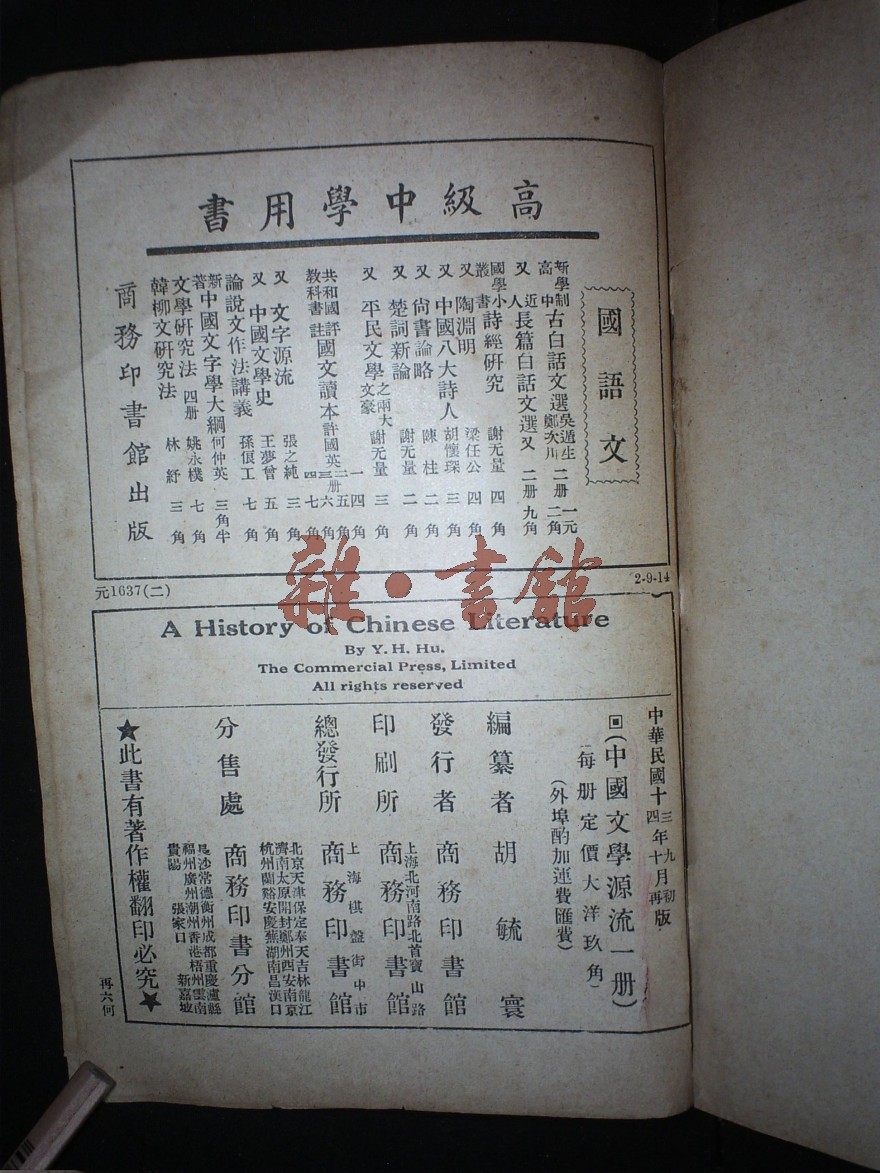 高級中學用書
國語文
新學制高中 古白話文選 吳遁生 鄭次川 二册 一元二角
又 近人長篇白話文選 又 二册 九角
國學小叢書 詩經研究 謝无量 四角
又 陶淵明 梁任公 四角
又 中國八大詩人 胡懷琛 三角
又 尙書論略 陳柱 二角
又 楚詞新論 謝无量 二角
又 平民文學之兩大文豪 謝无量 三角
共和國教科書 評註 國文讀本 許國英 四册 一 四角 二 五角 三 六角 四 七角
又 文字源流 張之純 三角
又 中國文學史 王夢曾 五角
論說文作法講義 孫俍工 七角
新著 中國文字學大綱 何仲英 三角半
文學研究法 四册 姚永樸 七角
韓柳文研究法 林紓 三角
商務印書館出版
元1637(二)
2-9-14
雜·書館
A History of Chinese Literature
By Y. H. Hu.
The Commercial Press, Limited
All rights reserved
中華民國十三年九月初版
四年十月再版
(中國文學源流一册)
每册定價大洋玖角
(外埠酌加運費匯費)
編纂者 胡毓寰
發行者 商務印書館
印刷所 上海北河南路北首寶山路 商務印書館
總發行所 上海棋盤街中市 商務印書館
分售處 商務印書分館
北京天津保定奉天吉林龍江
濟南太原開封鄭州西安南京
杭州蘭谿安慶蕪湖南昌漢口
長沙常德衡州成都重慶瀘縣
福州廣州潮州香港梧州雲南
貴陽 張家口 新嘉坡
★此書有著作權翻印必究★
再六何